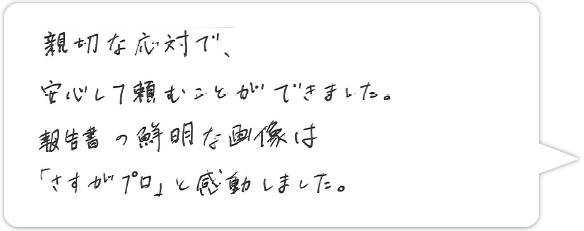 親切な応対で、
安心して頼むことができました。
報告書の鮮明な画像は
「さすがプロ」と感動しました。